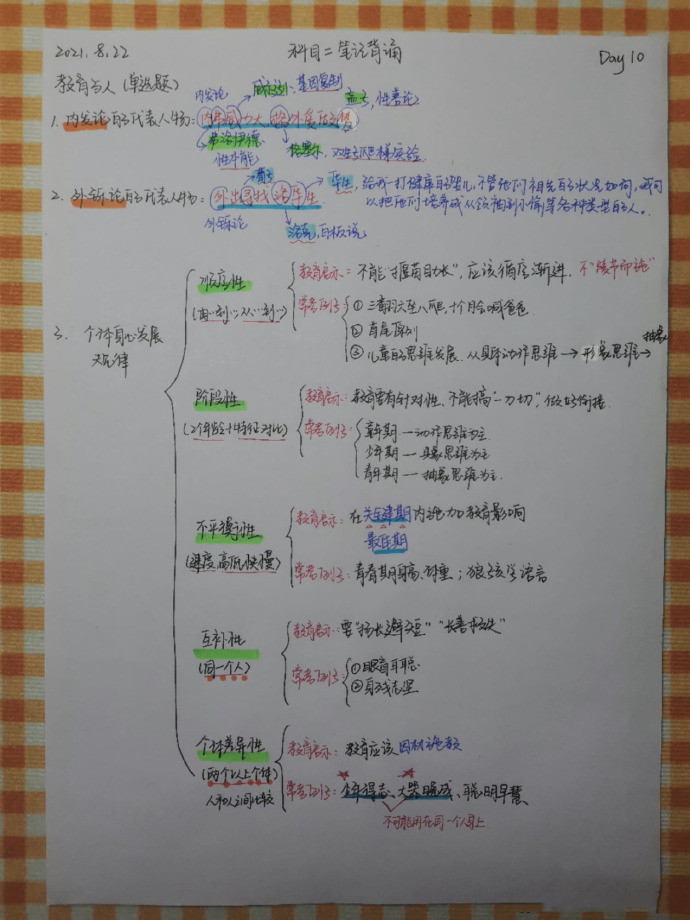 2021.8.22 科目二笔记背诵 Day 10
教育与人 (单选题)
内发论 威尔逊:基因复制 孟子,性善论
1. 内发论的代表人物: 内弗威力大 格外爱孟
弗洛伊德 性本能 格塞尔,双生子爬梯实验
荀子 华生,给我一打健康的婴儿,不管他们祖先的状况如何,我可
2. 外铄论的代表人物: 外出寻找洛华生 以把他们培养成从领袖到小偷等各种类型的人。
外铄论 洛克,白板说
3. 个体身心发展规律
顺序性
(由…到…从…到…)
教育启示:不能"揠苗助长",应该循序渐进,不"陵节而施"
常考例子: ①三翻六坐八爬,十个月会喊爸爸
②首尾原则
③儿童的思维发展.从具体动作思维→形象思维→抽象
阶段性
(2个年龄+特征对比)
教育启示:教育要有针对性,不能搞"一刀切",做好衔接
常考例子: 童年期—动作思维为主
少年期—具象思维为主
青年期—抽象思维为主.
不平衡性
(速度,高低快慢)
教育启示:在关键期内施加教育影响
最佳期
常考例子:青春期身高、体重;狼孩学语言
互补性
(同一个人)
教育启示:要"扬长避短" "长善救失"
常考例子: ①眼盲耳聪
②身残志坚
个体差异性
(两个以上个体)
人和人之间比较
教育启示:教育应该因材施教
常考例子:少年得志、大器晚成、聪明早慧
不可能用在同一个人身上